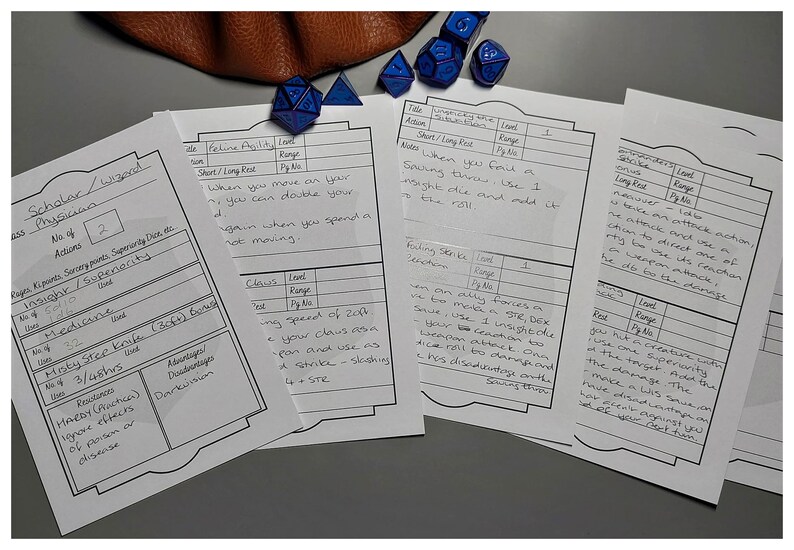 Scholar / Wizard
Physician
No. of
Actions
2
Rages, Ki points, Sorcery points, Superiority Dice, etc...
Insight / Superiority
No. of
Uses
5d10
1d6
Used
Medicine
No. of
Uses
32
Used
Misty Step Knife (30ft) Bonus
No. of
Uses
3/48hrs
Used
Resistances
HARDY (Practica)
Ignore effects
of poison or
disease
Advantages/
Disadvantages
Darkvision
Feline Agility
Level
Range
Short / Long Rest
Pg No.
When you move on your
you can double your
again when you spend a
not moving.
Claws
Level
Range
Pg No.
speed of 20ft
your claws as a
and use as
strike - slashing
4 + STR
Title
Unsticky the
Situation
Level
1
Action
Range
Short / Long Rest
Pg No.
Notes
When you fail a
Saving throw, use 1
insight die and add it
to the roll.
Foiling Strike
Level
1
Reaction
Range
Pg No.
when an ally forces a
to make a STR, DEX
save, use 1 insight die
your reaction to
weapon attack. On a
dice roll to damage and
has disadvantage on the
Saving throw.
Commanders
Strike
Level
Bonus
Range
Long Rest
Pg No.
Maneuver - 1d6
take an attack action,
one attack and use a
action to direct one of
party to use its reaction
a weapon attack,
the d6 to the damage
Level
Range
Rest
Pg No.
you hit a creature with
use one superiority
the target. Add the
the damage. The
make a WIS save, on
have disadvantage on
that aren't against you
end of your next turn.